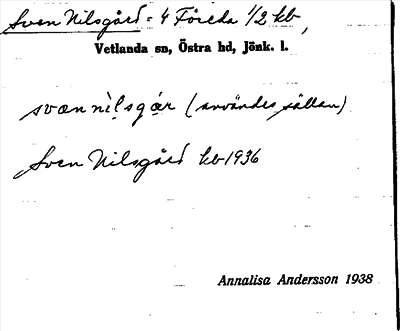 Sven Nilsgård = 4 Föreda 1/2 kb,
Vetlanda sn, Östra hd, Jönk. l.
svæn nìlsgår (användes sällan)
Sven Nilsgård kb 1936
Annalisa Andersson 1938